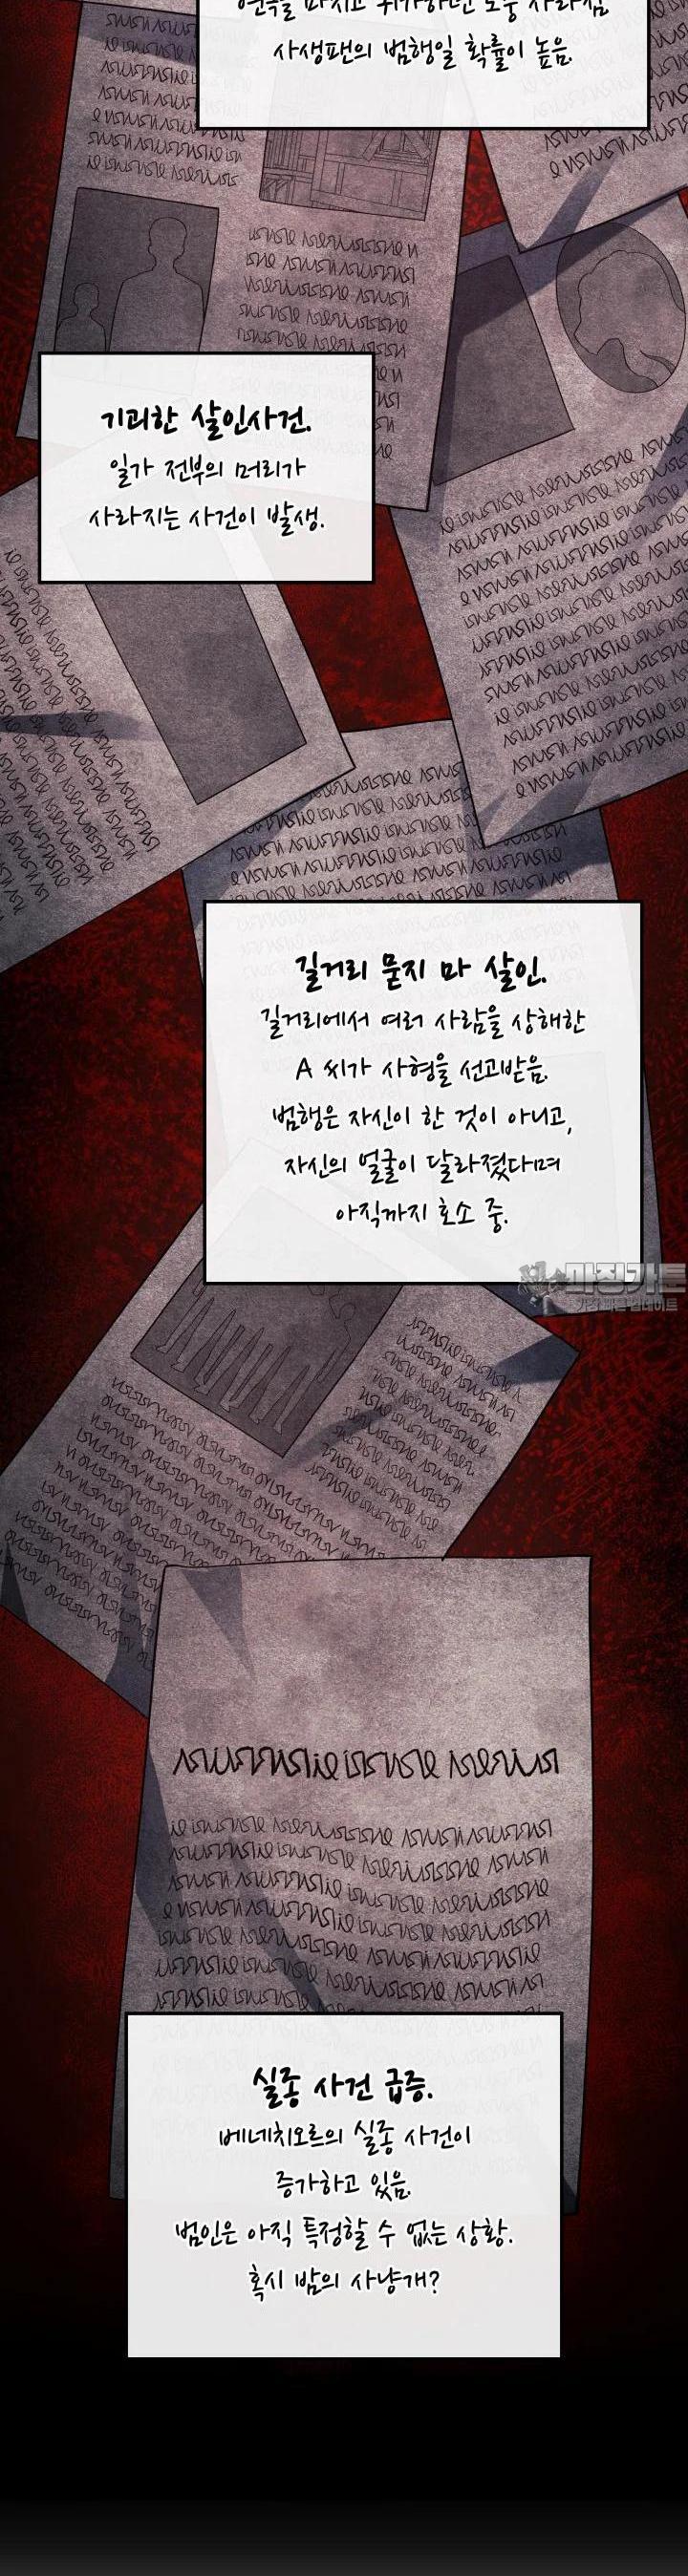 연극을 마치고 귀가하던 도중 사라짐
사생팬의 범행일 확률이 높음.
기괴한 살인사건.
일가 전부의 머리가
사라지는 사건이 발생.
길거리 묻지 마 살인.
길거리에서 여러 사람을 상해한
A 씨가 사형을 선고받음.
범행은 자신이 한 것이 아니고,
자신의 얼굴이 달라졌다며
아직까지 호소 중.
실종 사건 급증.
베네치오르의 실종 사건이
증가하고 있음.
범인은 아직 특정할 수 없는 상황.
혹시 밤의 사냥개?